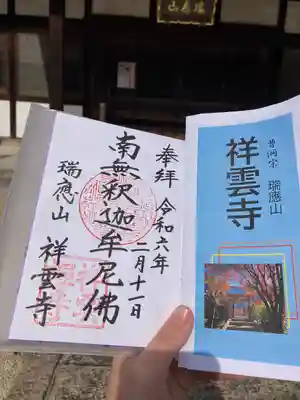 奉拝
令和六年
二月十一日
南無釈迦牟尼佛
瑞應山
祥雲寺
曹洞宗
瑞應山
祥雲寺